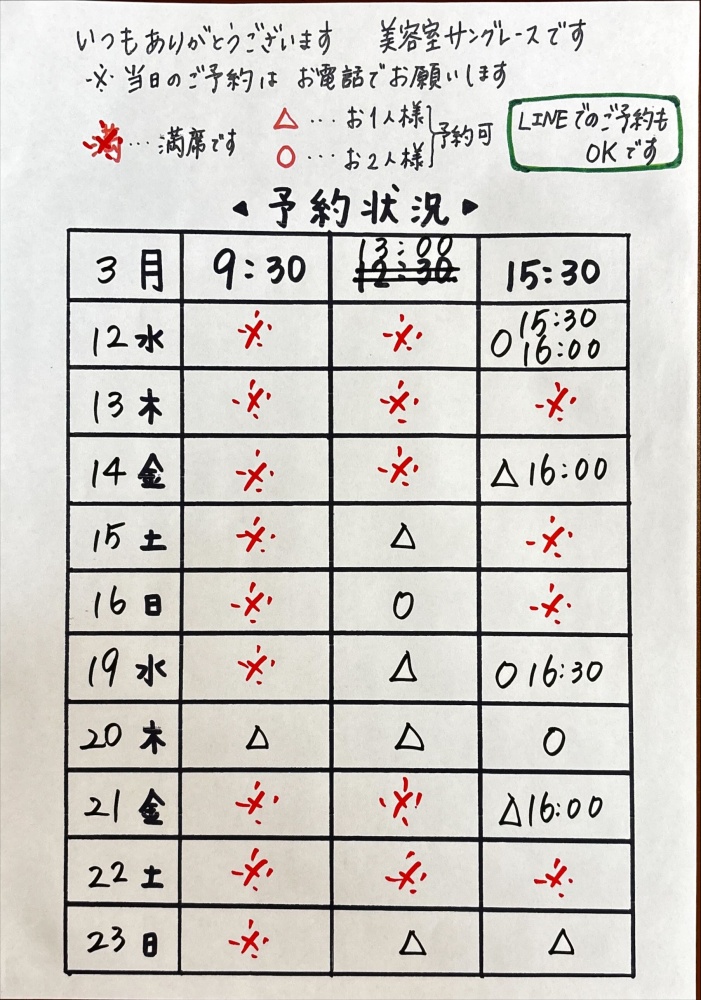 いつもありがとうございます 美容室サングレースです
※当日のご予約は お電話でお願いします
※…満席です
△…お1人様
○…お2人様
予約可
LINEでのご予約も
OKです
◀予約状況▶
3月 9:30 13:00 12:30 15:30
12水 ※ ※ ○15:30 16:00
13木 ※ ※ ※
14金 ※ ※ △16:00
15土 ※ △ ※
16日 ※ ○ ※
19水 ※ △ ○16:30
20木 △ △ ○
21金 ※ ※ △16:00
22土 ※ ※ ※
23日 ※ △ △